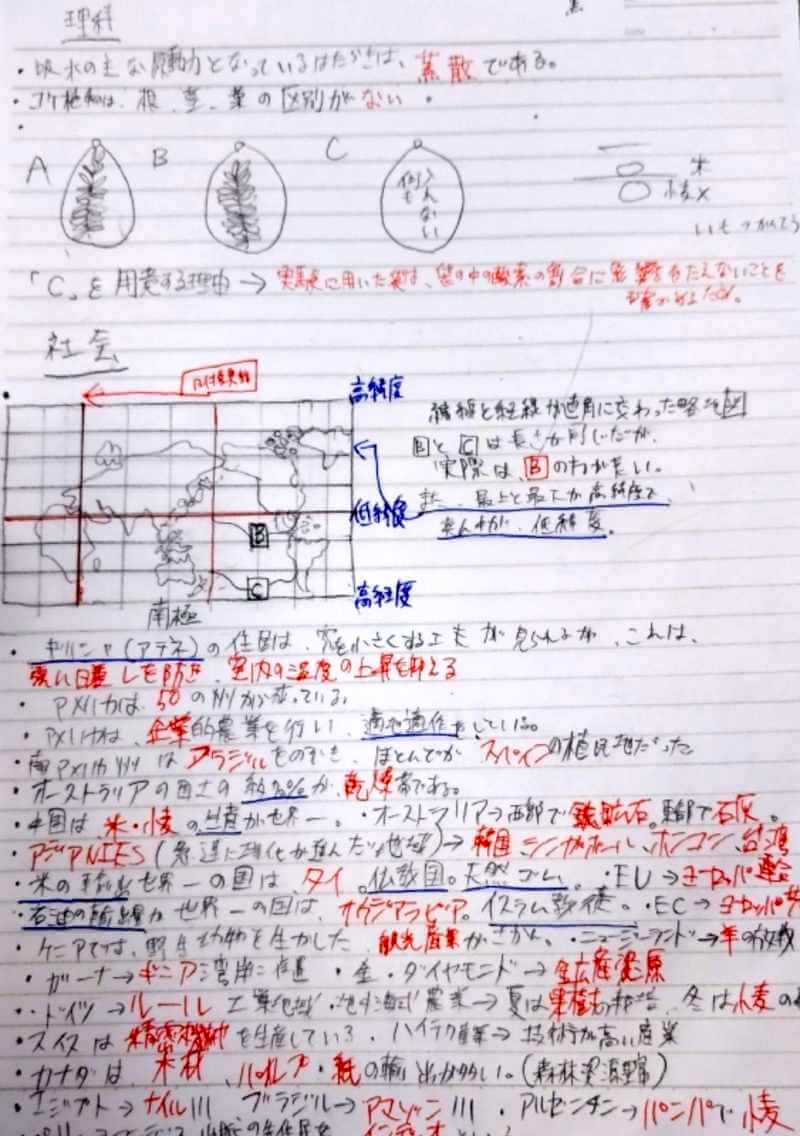 理科
・吸水の主な原動力となっているはたらきは、蒸散である。
・コケ植物は、根、茎、葉の区別がない。
A B C
何も入れない
米
小麦×
「C」を用意する理由→実験に用いた袋は、袋の中の酸素の割合に影響をあたえないことを
確かめるため。
社会
日付変更線
高緯度
緯線と経線が直角に交わった略地図
BとCは長さが同じだが、
実際は、Bのわがながい。
低緯度
また、最上と最下が高緯度で、
まん中が、低緯度。
B
C
高緯度
南極
・ギリシャ(アテネ)の住居は、窓を小さくする工夫が見られるが、これは、
強い日差しを防ぎ、室内の温度の上昇を抑える
・アメリカは50の州から成っている。
・アメリカは、企業的農業を行い、適地適作をしている。
・南アメリカ州はブラジルをのぞき、ほとんどがスペインの植民地だった
・オーストラリアの国土の約70%が、乾燥帯である。
・中国は米・小麦の生産が世界一。・オーストラリア→西部で鉄鉱石。東部で石炭。
・アジアNIES(急速に工業化が進んだ地域)→韓国、シンガポール、ホンコン、台湾
・米の輸出世界一の国は、タイ。仏教国。天然ゴム。・EU→ヨーロッパ連合
・石油の輸出量が世界一の国は、サウジアラビア。イスラム教徒。・EC→ヨーロッパ
・ケニアでは、野生動物を生かした、観光産業がさかん。・ニュージーランド→羊の放牧
・ガーナ→ギニア湾岸に位置・金・ダイヤモンド→鉱産資源
・ドイツ→ルール工業地域・地中海式農業→夏は果樹 冬は小麦の
・スイスは精密機械を生産している・ハイテク産業→技術が高い産業
・カナダは、木材、パルプ・紙の輸出が多い。(森林資源豊富)
・エジプト→ナイル川 ブラジル→アマゾン川・アルゼンチン→パンパで小麦